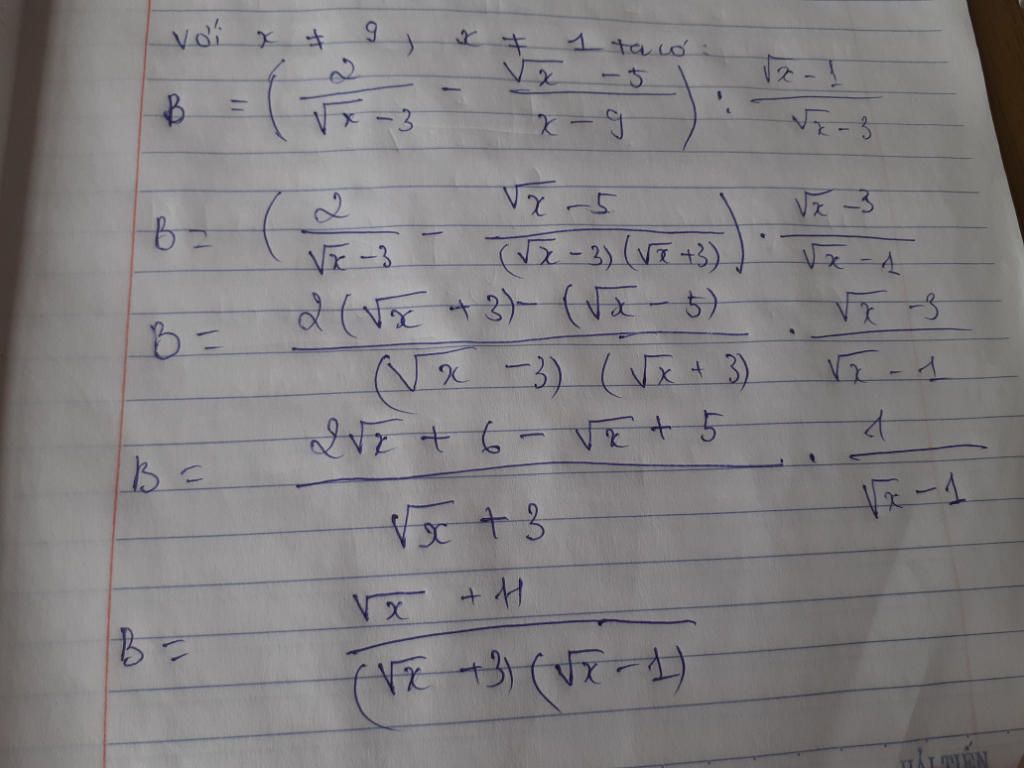 với x ≠ 9, x ≠ 1 ta có:
B = (2/(√x - 3) - (√x - 5)/(x - 9)) : (√x - 1)/(√x - 3)
B = (2/(√x - 3) - (√x - 5)/((√x - 3)(√x + 3))) · (√x - 3)/(√x - 1)
B = (2(√x + 3) - (√x - 5))/((√x - 3)(√x + 3)) · (√x - 3)/(√x - 1)
B = (2√x + 6 - √x + 5)/(√x + 3) · 1/(√x - 1)
B = (√x + 11)/((√x + 3)(√x - 1))